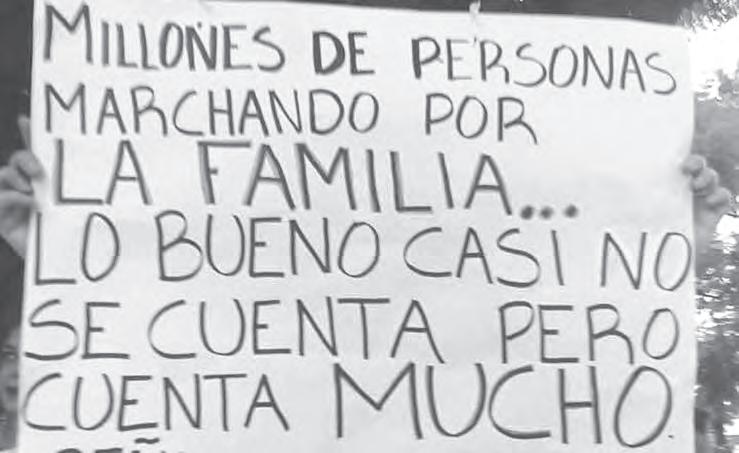 MILLONES DE PERSONAS
MARCHANDO POR
LA FAMILIA...
LO BUENO CASI NO
SE CUENTA PERO
CUENTA MUCHO.